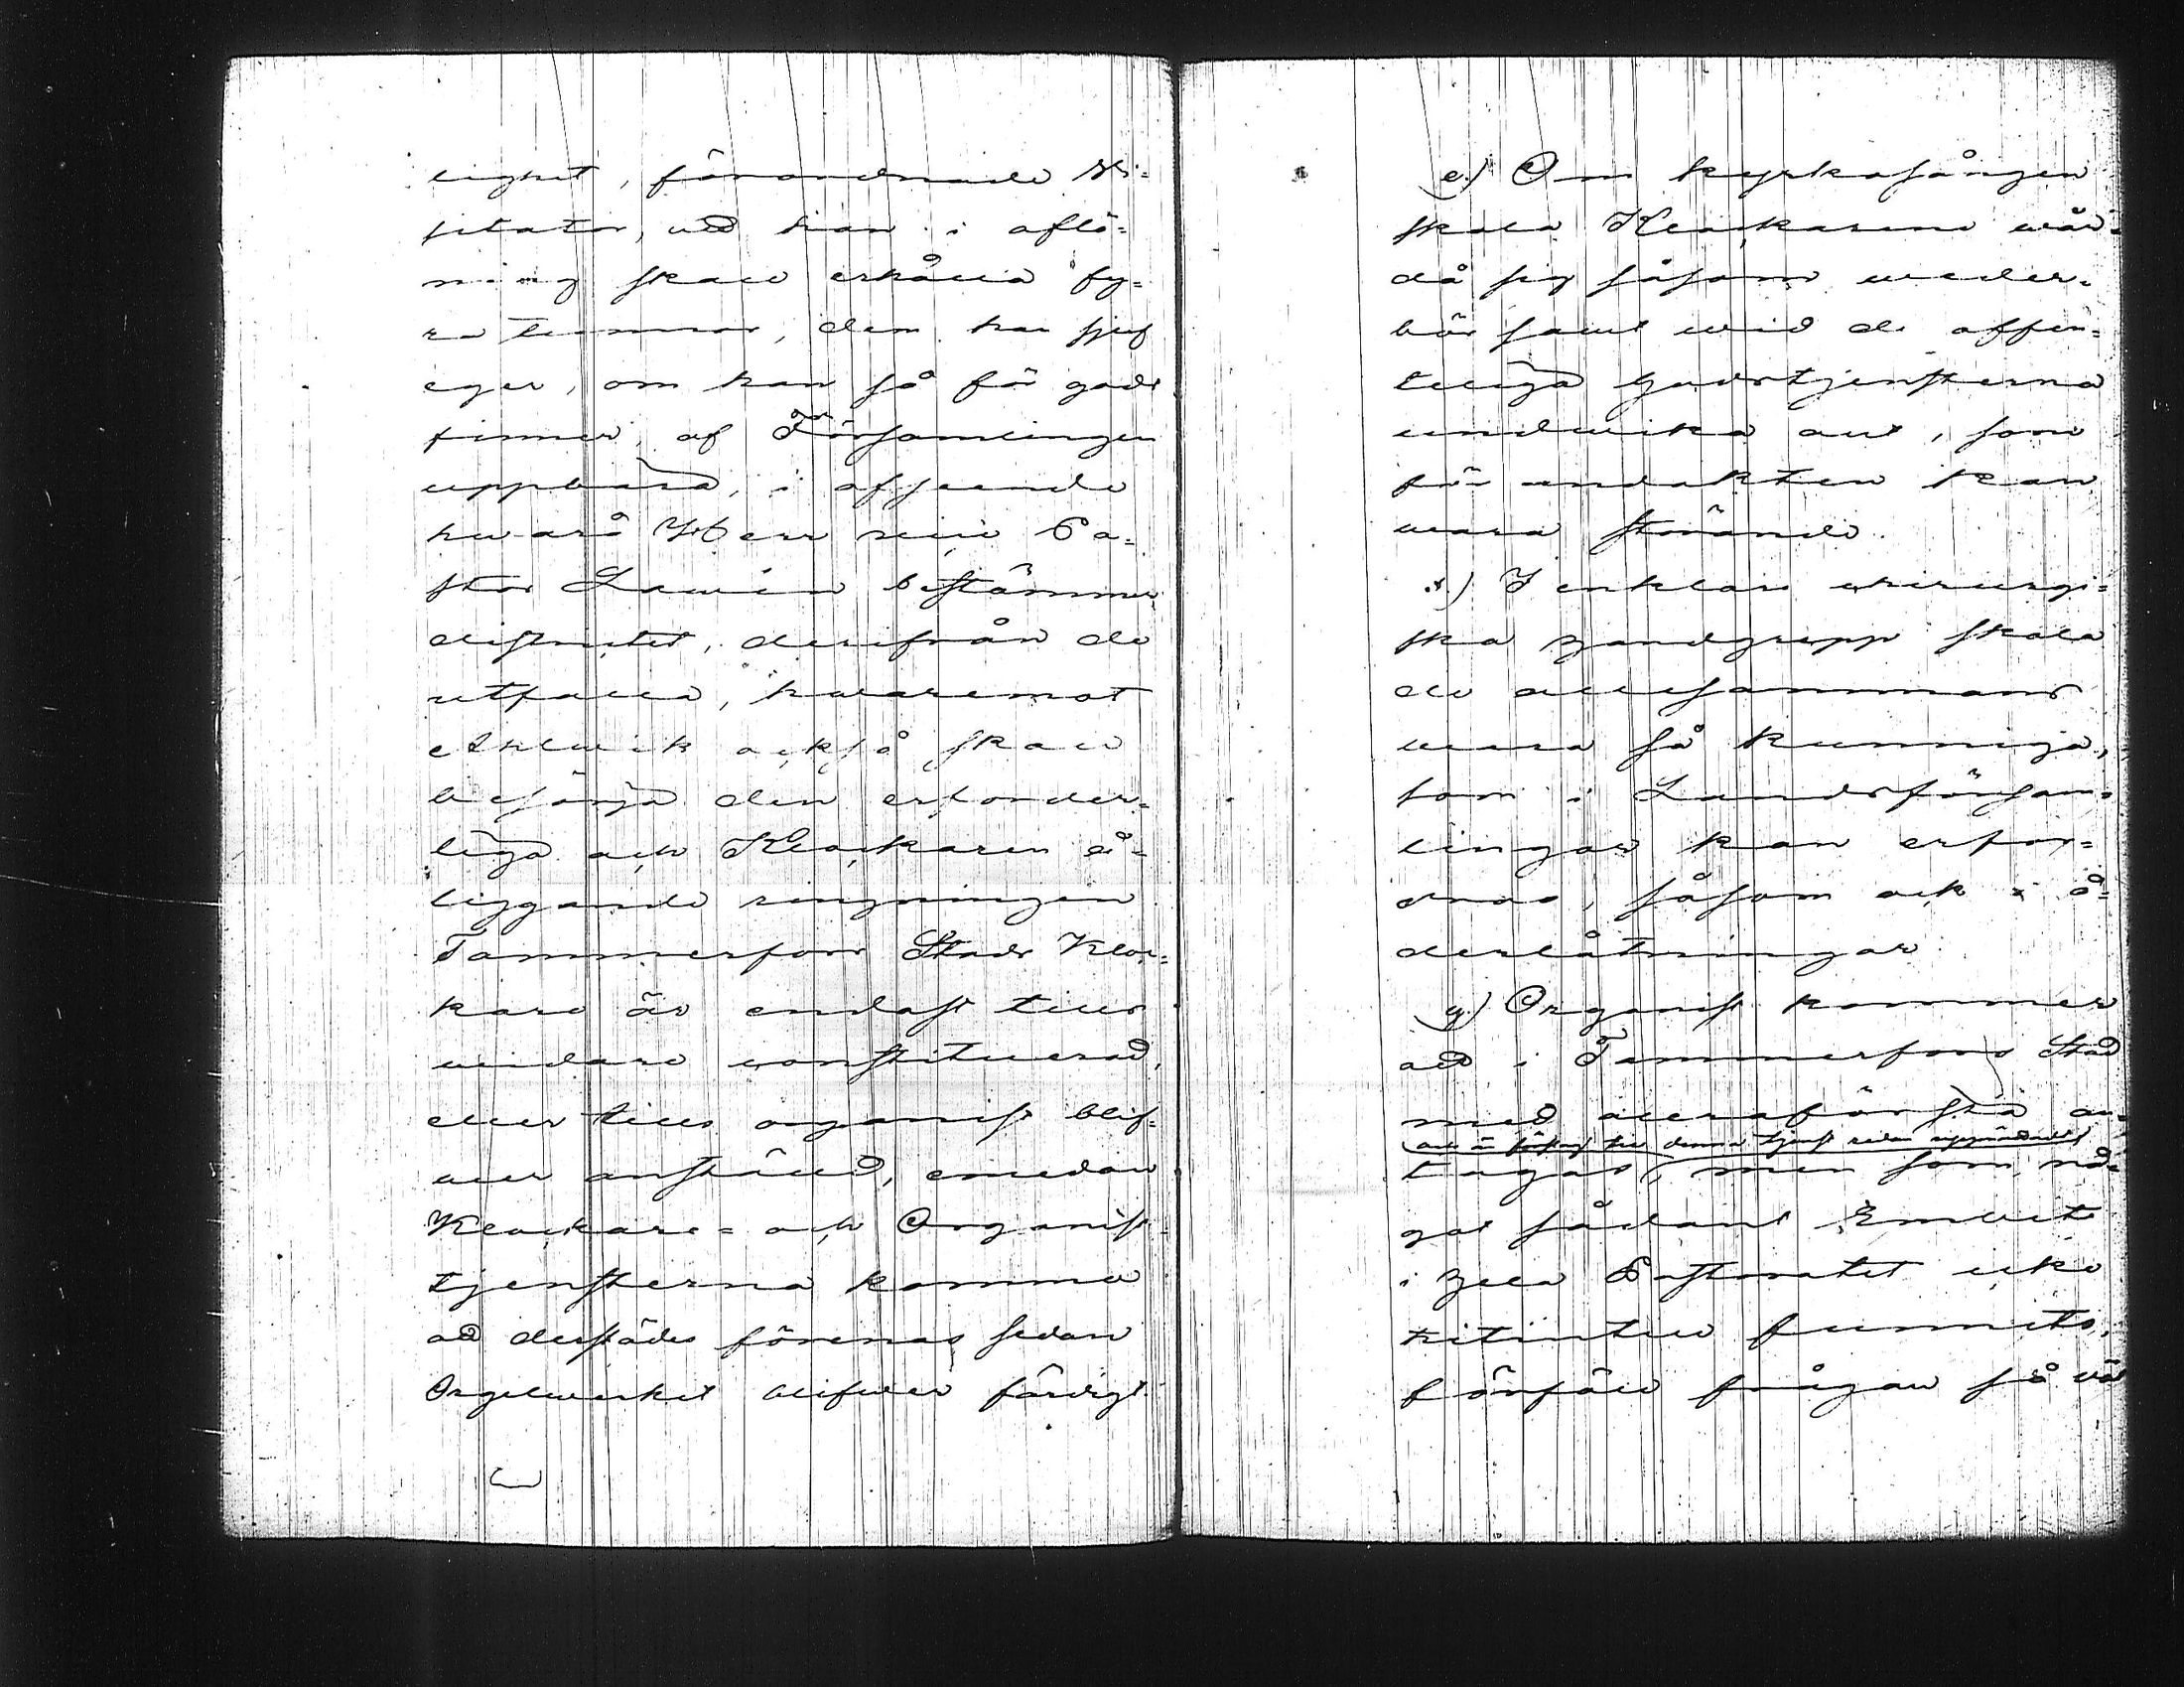 lighet, förordnade Vi=
sitator, att han i aflö=
ning skall erhålla fy=
ra tunnor, dem han sjelf
eger, om han så för godt
finner, af Församlingen
uppbära, i afseende
hvarå Herr vice Pa=
stor Lawén bestämmer
distriktet, derifrån de
utfalla, hvaremot
Ahlwik också skall
besörja den erforder=
liga och Klockaren å=
liggande ringningen
Tammerfors Stads Kloc=
kare är endast tills
vidare constituerad,
eller tills organist blif=
ver anställd, emedan
Klockare= och Organist
tjensterna komma
att derstädes förenas sedan
Orgelverket blifver färdigt
e.) Om kyrkosången
skola Klockarene vår=
då sig såsom veder=
bör samt wid de offen=
teliga Gudstjensterna
undvika allt, som
för andakten kan
vara störande.
f.) I enklare chirurgi=
ska handgrepp skola
de allesammans
vara så kunniga,
som i Landsförsam=
lingar kan erfor=
dras, såsom ock i å=
derlåtningar.
g.) Organist kommer
att i Tammerfors Stad
med allraförsta an=
och är förslag till denna tjenst redan upprättadt
tagas, men som nå=
got sådant Embete
i hela Pastoratet icke
hitintill funnits,
förföll frågan så väl